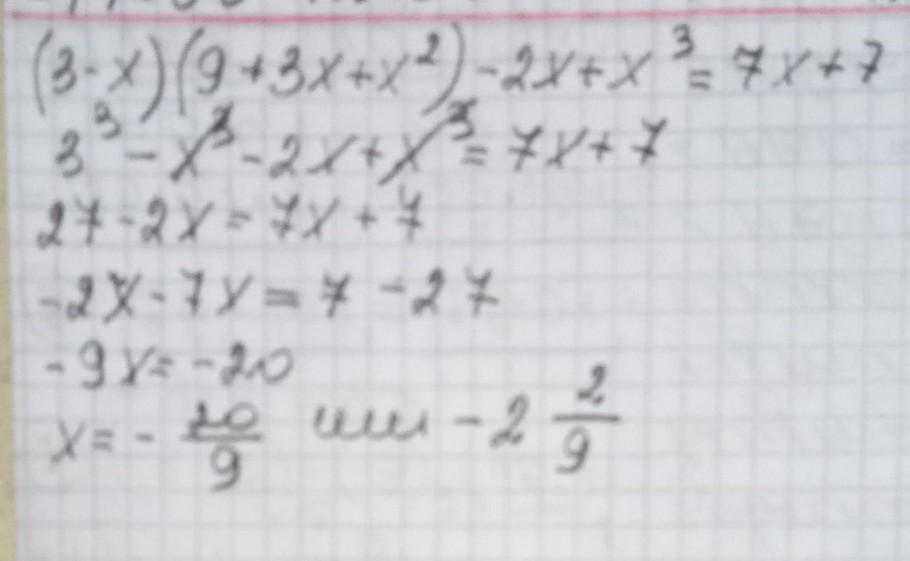 (3-x)(9+3x+x²)-2x+x³=7x+7
3³-x³-2x+x³=7x+7
27-2x=7x+7
-2x-7x=7-27
-9x=-20
x=-20/9 или -2 2/9